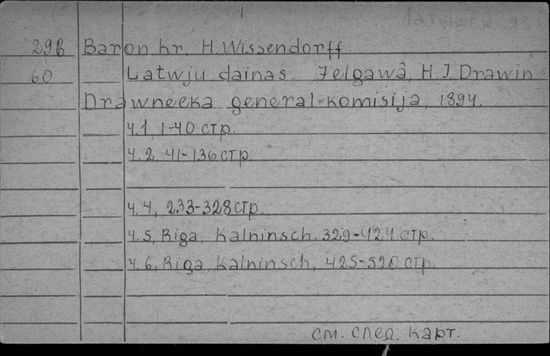 29в Baron kr. H. Wissendorff
60 Latwju dainas. Jelgawâ, H. J. Drawin
Drawneeka general-komisija, 1894.
ч. 1, 1-40 стр.
ч. 2, 41-136 стр.
ч. 4, 233-328 стр.
ч. 5, Riga, Kalninsch. 329-424 стр.
ч. 6, Riga, Kalninsch, 425-520 стр.
см. след. карт.